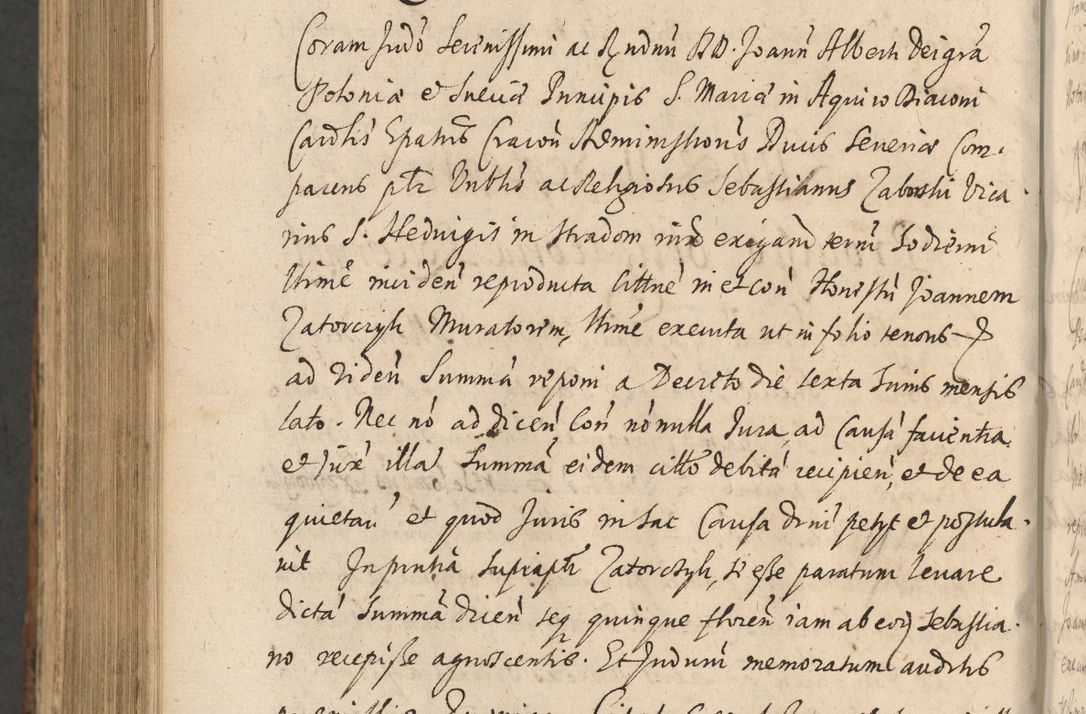 Coram Judō Serenissimi ac Rndnū DD. Joann Alberti Dei grā
Poloniæ et Sueciæ Principis S. Mariæ in Aquiro Diaconi
Cardlis Epatus Cracoū Administroris Ducis Severiæ Com-
parens pstr Vnblis ac Religiosus Sebastianus Zaborski Vica-
rius S. Hedvigis in Stradom iurō exequam term hodierni
ltime inciden reproducta Cittne in et con Honestu Joannem
Zatorczyk Muratorem, ltime executa ut in folio tenoris
ad viden Summā reponi a Decreto die sexta Junis mensis
lato. Nec nō ad dicen Con nōnulla Jura ad Causā facientia
et Jurē illā Summā eidem citto debitā recipien, et de ea
quietan et quod Juris in hac Causa drni petyt et postula-
vit In pntia supraptr Zatorczyk, se esse paratum levare
dictā Summā dicen seq quinque floren iam ab eodj Sebastia-
no recepisse agnoscentis. Et Judum memoratum auditis